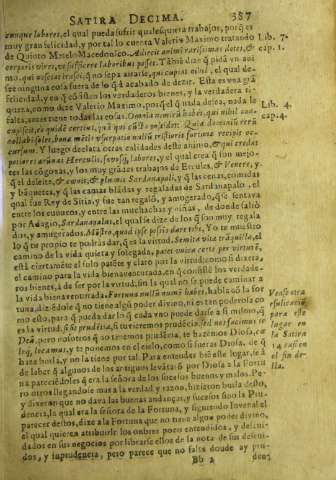 SATIRA DECIMA. 387
aunque labores, el qual pueda sufrir qualesquiera trabajos, porq̃ es
muy gran felicidad, y por tal lo cuenta Valerio Maximo tratando
Lib. 7.
de Quinto Metelo Macedonico. Adiecit animi rarissimas dotes, &
cap. 1.
corporis vires, vt sufficere laboribus posset. Tãbiẽ dize q̃ pidã vn ani-
mo, qui nesciat irasci, q̃ no sepa airarse, qui cupiat nihil, el qual de-
see ninguna cosa fuera de lo q̃ acabado de dezir. Esta es vna grã
felicidad, y en q̃ cõsisten los verdaderos bienes, y la verdadera ri-
queza, como dize Valerio Maximo, porq̃ el q̃ nada desea, nada le
Lib. 4.
falta, antes tiene todas las cosas. Omnia nimirum habet, qui nihil con-
cap. 4.
cupiscit,
cat. Y luego declara otras calidades deste animo, & qui credat
potiores ærunas Herculis, sævosq́; labores, y el qual crea q̃ son mejo-
res las cõgoxas, y los muy grãdes trabajos de Ercules, & Venere, y
q̃ el deleite, & cœnis, & plumis Sardanapali, y q̃ las cenas, comidas
y bãquetes, y q̃ las camas blãdas y regaladas de Sardanapalo, el
qual fue Rey de Siria, y fue tan regaló, y amugerado, q̃ se sentava
entre los eunucos, y entre las muchachas y niñas, de donde saltò
por Adagio, Sardanapalus, el qual se dize de los q̃ son muy regala
dos, y amugerados. Mõstro, quod ipse possis dare tibi, Yo te muestro
lo q̃ tu propio te podràs dar, q̃ es la virtud, Semita vitæ trãquilla, el
camino de la vida quieta y sosegada, patet vnica certe per virtutẽ,
està ciertamẽte el solo patẽte y claro por la virtud; como si dixera,
el camino para la vida bienaventurada, en q̃ consistẽ los verdade-
ros bienes, à de ser por la virtud, sin la qual no se puede caminar a
la vida bienaventurada. Fortuna nullũ numẽ habes, habla cõ la For
Vease otra
tuna, diziẽdole q̃ no tiene algũ poder divino, ni es tan poderosa co
esplicaciõ
mo esto, para q̃ pueda dar lo q̃ cada vno puede darse a si mismo, q̃
para este
es la virtud, si sit prudẽtia, si tuvieremos prudẽcia, sed nos facimus te
lugar en
Deã, pero nosotros q̃ no tenemos prudẽcia, te hazemos Diosa, cæ-
la Satira
loq́; locamus, y te ponemos en el cielo, como si fueras Diosa, de q̃
14. casi en
haze burla, y no la tiene por tal. Para entender biẽ este lugar, se à
el fin de-
de saber q̃ algunos de los antiguos levãtarõ por Diosa a la Fortu
lla.
na pareciẽdoles q̃ era la señora de los sucesos buenos y malos. Pe-
ro otros llegandose mas a la verdad y razon, hizieron burla desto,
y dixeron que no dava las buenas andanças, y sucesos sino la Pru-
dencia, la qual era la señora de la Fortuna, y siguiendo Iuvenal el
parecer destos, dize a la Fortuna que no tiene algun poder divino,
el qual quieren atribuirle los onbres poco entendidos, y descui-
dados en sus negocios por librarse ellos de la nota de sus descui-
dos, y inprudencia, pero parece que no falta donde ay pru-
Bb 2
den-